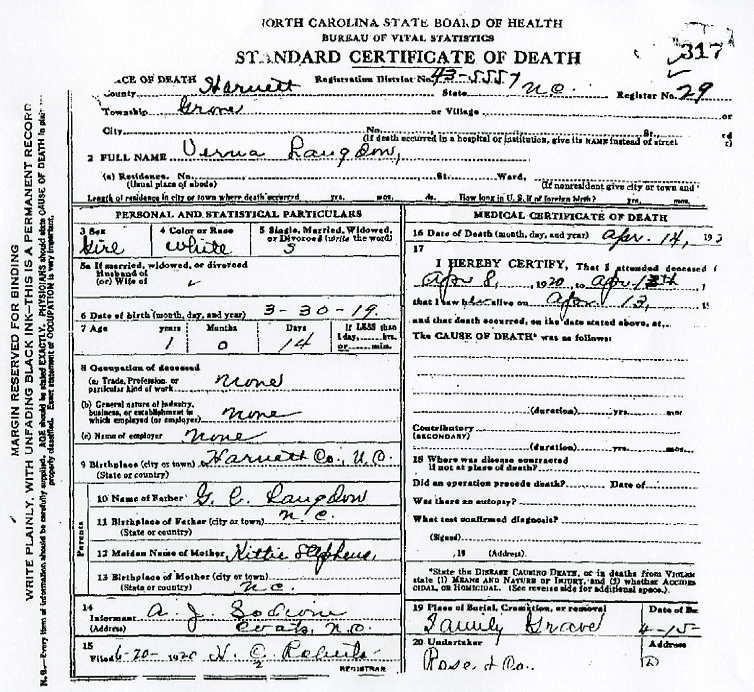 ORTH CAROLINA STATE BOARD OF HEALTH
BUREAU OF VITAL STATISTICS
STANDARD CERTIFICATE OF DEATH
317
ACE OF DEATH Registration District No. 43-5557
County Harnett State N.C. Register No. 29
Township Grove or Village or
City No. St.,
(If death occurred in a hospital or institution, give its NAME instead of street
2 FULL NAME Verna Langdon,
(a) Residence. No. St. Ward,
(Usual place of abode) (If nonresident give city or town and
Length of residence in city or town where death occurred yrs. mos. ds. How long in U.S. if of foreign birth? yrs. mos.
PERSONAL AND STATISTICAL PARTICULARS
3 Sex 4 Color or Race 5 Single, Married, Widowed, or Divorced (write the word)
Girl White S
5a If married, widowed, or divorced
Husband of
(or) Wife of
6 Date of birth (month, day, and year) 3-30-19
7 Age years Months Days If LESS than
1 0 14 1 day, hrs.
or min.
8 Occupation of deceased
(a) Trade, Profession, or particular kind of work none
(b) General nature of industry, business, or establishment in which employed (or employer) none
(c) Name of employer none
9 Birthplace (city or town) Harnett Co., N.C.
(State or country)
Parents
10 Name of Father G. C. Langdon
11 Birthplace of Father (city or town) N.C.
(State or country)
12 Maiden Name of Mother Kittie Stephens,
13 Birthplace of Mother (city or town)
(State or country) N.C.
14
Informant A. J.
(Address) Coats, N.C.
15
Filed 6-20-1920 H. C. Roberts
REGISTRAR
MEDICAL CERTIFICATE OF DEATH
16 Date of Death (month, day, and year) Apr. 14, 192
17
I HEREBY CERTIFY, That I attended deceased f
Apr 8, 1920, to Apr 13th
that I saw alive on Apr 13,
and that death occurred, on the date stated above, at
The CAUSE OF DEATH* was as follows:
(duration) yrs. mos
Contributory
(SECONDARY)
(duration) yrs. mos.
18 Where was disease contracted
if not at place of death?
Did an operation precede death? Date of
Was there an autopsy?
What test confirmed diagnosis?
(Signed)
, 19 (Address)
*State the DISEASE CAUSING DEATH, or in deaths from VIOLEN
state (1) MEANS AND NATURE OF INJURY, and (2) whether ACCIDEN
CIDAL, or HOMICIDAL. (See reverse side for additional space.)
19 Place of Burial, Cremation, or removal Date of Bu
Family Grave 4-15-
20 Undertaker Address
Rose & Co.
MARGIN RESERVED FOR BINDING
WRITE PLAINLY, WITH UNFADING BLACK INK—THIS IS A PERMANENT RECORD
N.B.—Every item of information should be carefully supplied. AGE should be stated EXACTLY. PHYSICIANS should state CAUSE OF DEATH in plain
properly classified. Exact statement of OCCUPATION is very important.